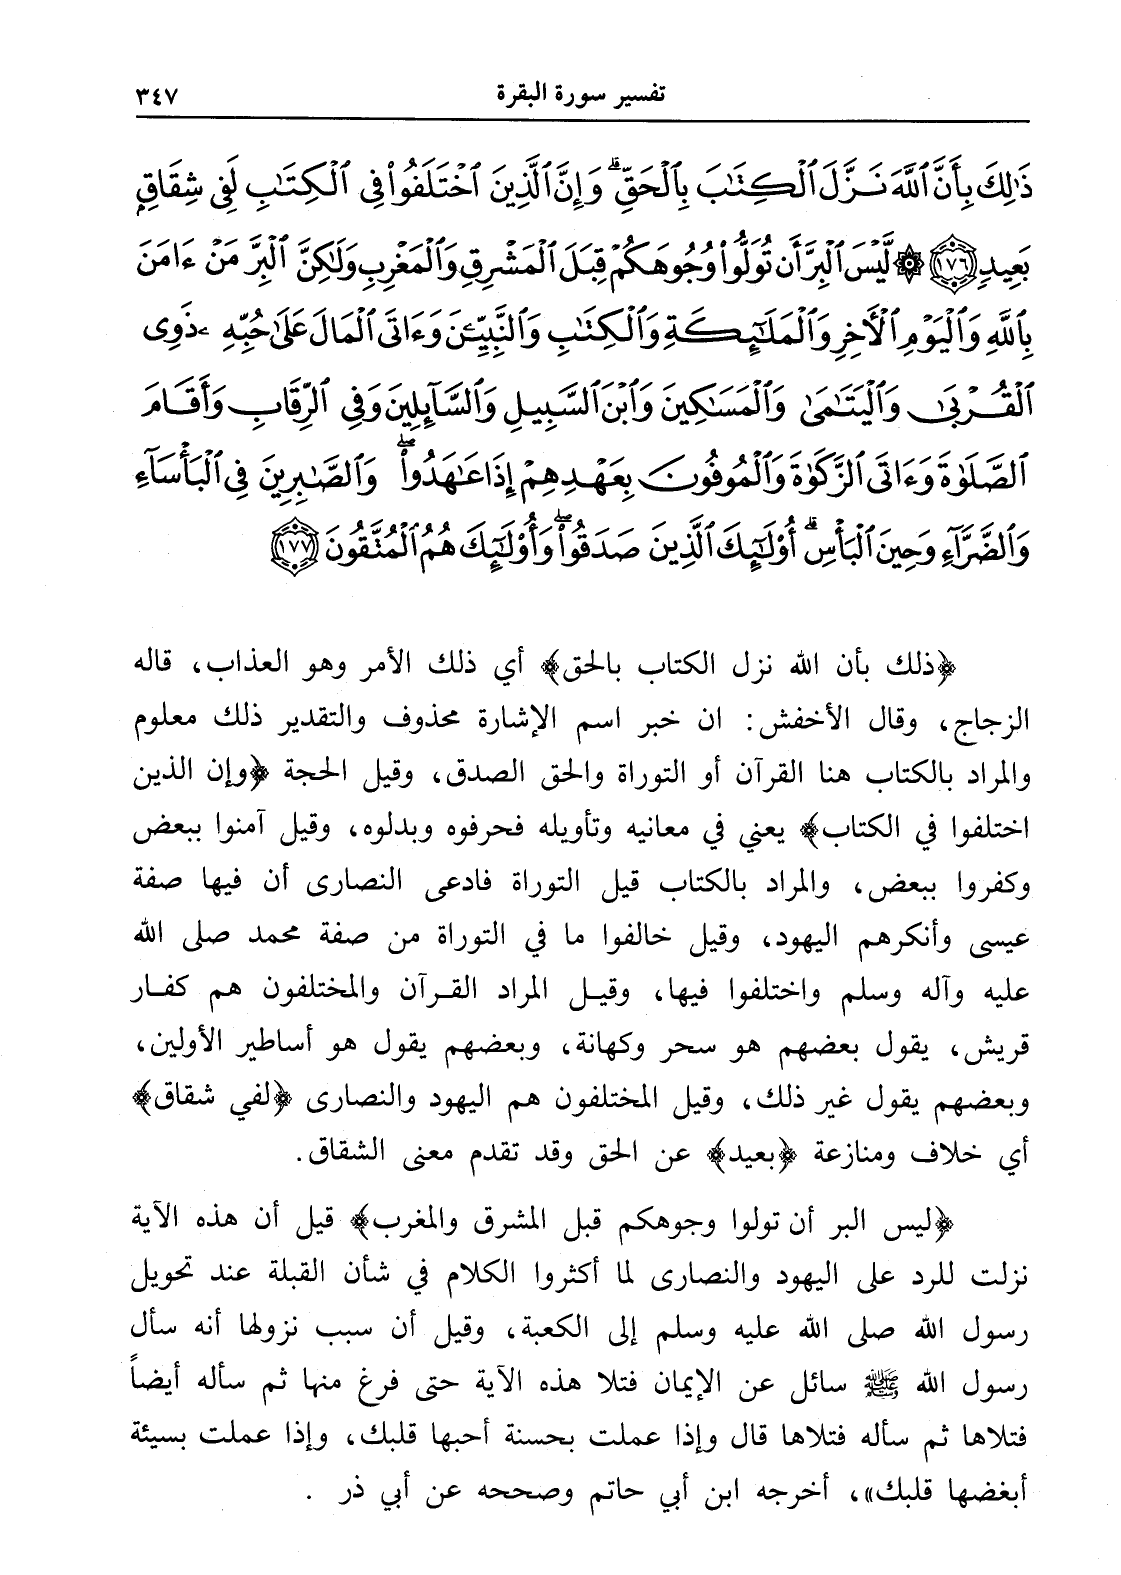 تفسير سورة البقرة ٣٤٧
ذَٰلِكَ بِأَنَّ ٱللَّهَ نَزَّلَ ٱلْكِتَٰبَ بِٱلْحَقِّ ۗ وَإِنَّ ٱلَّذِينَ ٱخْتَلَفُوا۟ فِى ٱلْكِتَٰبِ لَفِى شِقَاقٍۭ
بَعِيدٍ ١٧٦ ۞ لَّيْسَ ٱلْبِرَّ أَن تُوَلُّوا۟ وُجُوهَكُمْ قِبَلَ ٱلْمَشْرِقِ وَٱلْمَغْرِبِ وَلَٰكِنَّ ٱلْبِرَّ مَنْ ءَامَنَ
بِٱللَّهِ وَٱلْيَوْمِ ٱلْأَخِرِ وَٱلْمَلَٰٓئِكَةِ وَٱلْكِتَٰبِ وَٱلنَّبِيِّۦنَ وَءَاتَى ٱلْمَالَ عَلَىٰ حُبِّهِۦ ذَوِى
ٱلْقُرْبَىٰ وَٱلْيَتَٰمَىٰ وَٱلْمَسَٰكِينَ وَٱبْنَ ٱلسَّبِيلِ وَٱلسَّآئِلِينَ وَفِى ٱلرِّقَابِ وَأَقَامَ
ٱلصَّلَوٰةَ وَءَاتَى ٱلزَّكَوٰةَ وَٱلْمُوفُونَ بِعَهْدِهِمْ إِذَا عَٰهَدُوا۟ ۖ وَٱلصَّٰبِرِينَ فِى ٱلْبَأْسَآءِ
وَٱلضَّرَّآءِ وَحِينَ ٱلْبَأْسِ ۗ أُو۟لَٰٓئِكَ ٱلَّذِينَ صَدَقُوا۟ ۖ وَأُو۟لَٰٓئِكَ هُمُ ٱلْمُتَّقُونَ ١٧٧
﴿ذلك بأن الله نزل الكتاب بالحق﴾ أي ذلك الأمر وهو العذاب، قاله
الزجاج، وقال الأخفش: ان خبر اسم الإشارة محذوف والتقدير ذلك معلوم
والمراد بالكتاب هنا القرآن أو التوراة والحق الصدق، وقيل الحجة ﴿وإن الذين
اختلفوا في الكتاب﴾ يعني في معانيه وتأويله فحرفوه وبدلوه، وقيل آمنوا ببعض
وكفروا ببعض، والمراد بالكتاب قيل التوراة فادعى النصارى أن فيها صفة
عيسى وأنكرهم اليهود، وقيل خالفوا ما في التوراة من صفة محمد صلى الله
عليه وآله وسلم واختلفوا فيها، وقيل المراد القرآن والمختلفون هم كفار
قريش، يقول بعضهم هو سحر وكهانة، وبعضهم يقول هو أساطير الأولين،
وبعضهم يقول غير ذلك، وقيل المختلفون هم اليهود والنصارى ﴿لفي شقاق﴾
أي خلاف ومنازعة ﴿بعيد﴾ عن الحق وقد تقدم معنى الشقاق.
﴿ليس البر أن تولوا وجوهكم قبل المشرق والمغرب﴾ قيل أن هذه الآية
نزلت للرد على اليهود والنصارى لما أكثروا الكلام في شأن القبلة عند تحويل
رسول الله صلى الله عليه وسلم إلى الكعبة، وقيل أن سبب نزولها أنه سأل
رسول الله ﷺ سائل عن الإيمان فتلا هذه الآية حتى فرغ منها ثم سأله أيضاً
فتلاها ثم سأله فتلاها قال وإذا عملت بحسنة أحبها قلبك، وإذا عملت بسيئة
أبغضها قلبك»، أخرجه ابن أبي حاتم وصححه عن أبي ذر .